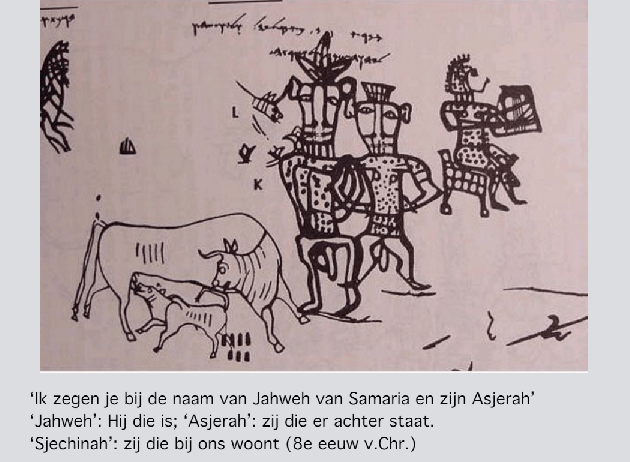 L
K
‘Ik zegen je bij de naam van Jahweh van Samaria en zijn Asjerah’
‘Jahweh’: Hij die is; ‘Asjerah’: zij die er achter staat.
‘Sjechinah’: zij die bij ons woont (8e eeuw v.Chr.)